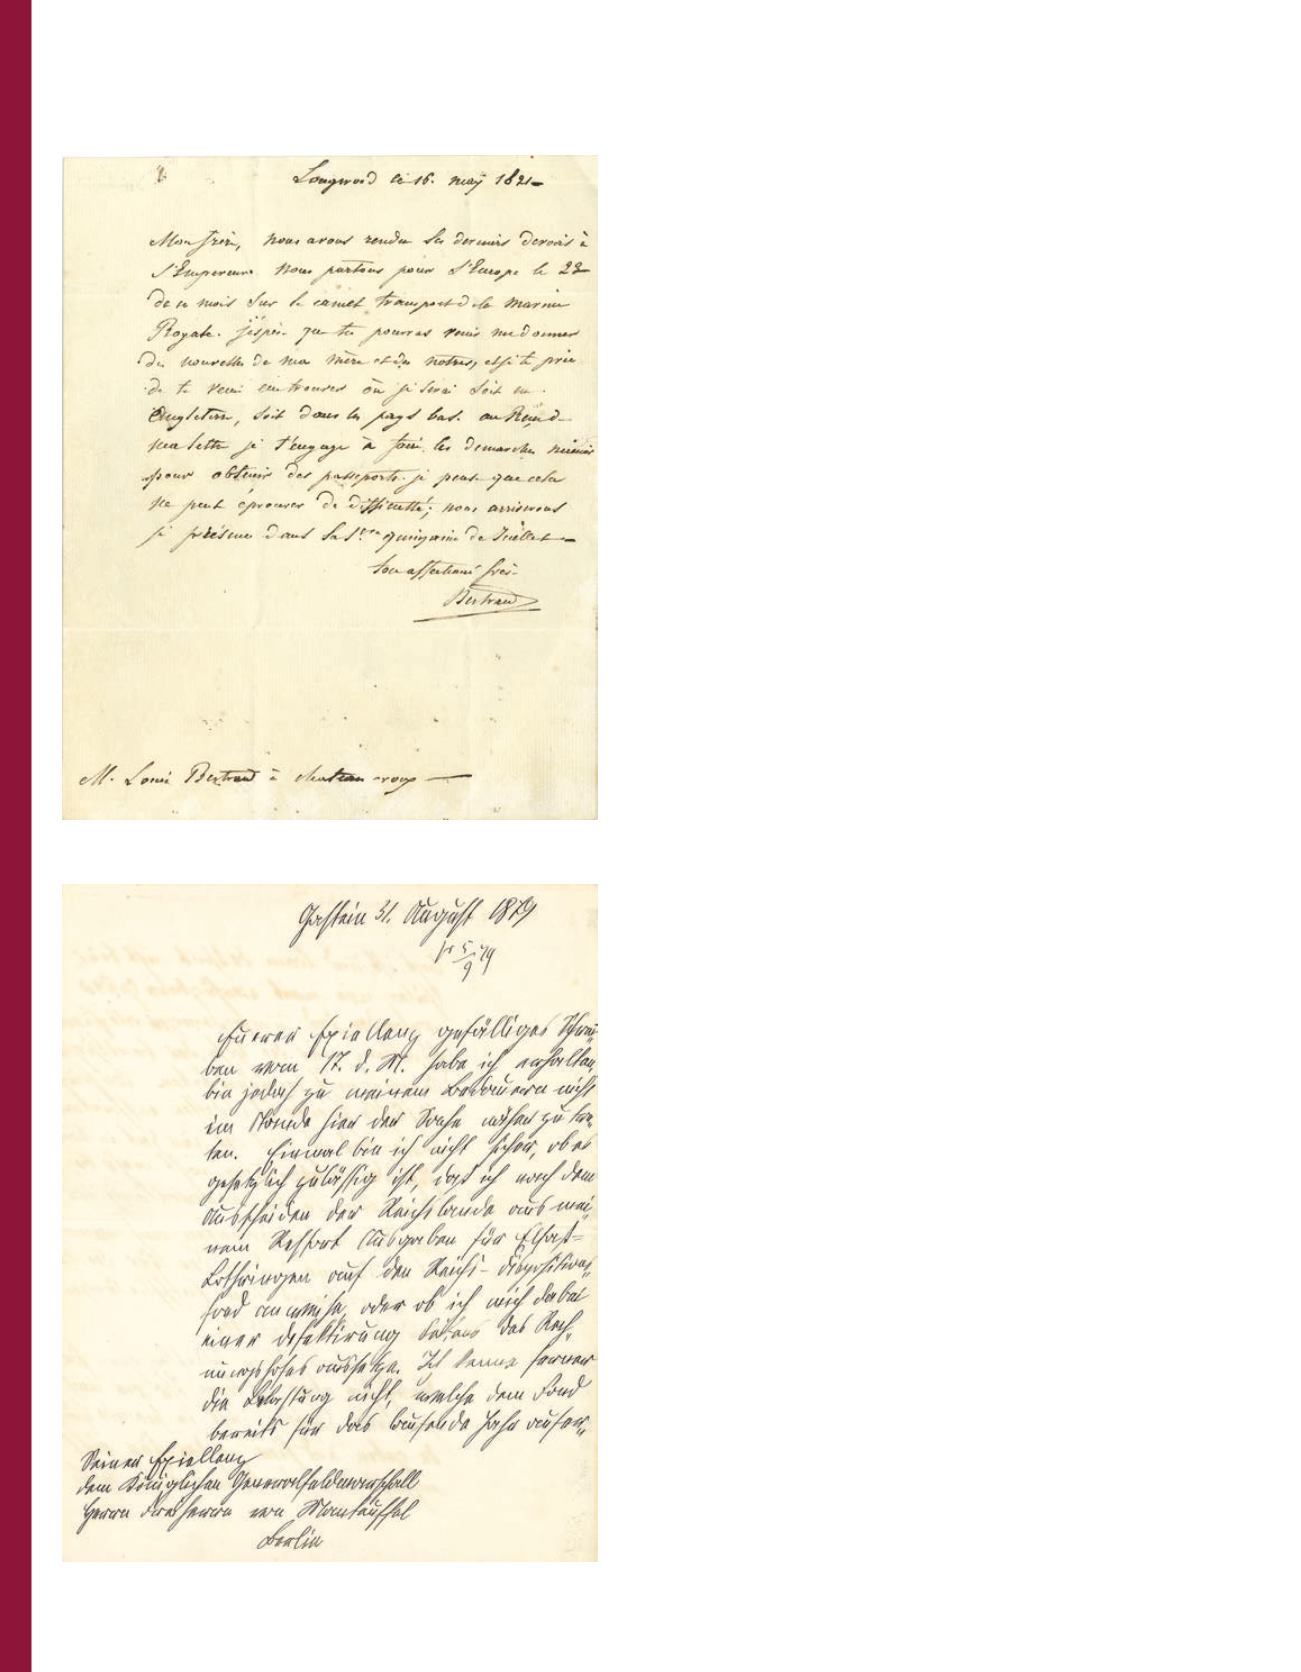 Longwood le 16. may 1821
Mon frère, nous avons rendu les derniers devoirs à
l'Empereur. nous partons pour l'Europe le 22
de ce mois sur le camel transport de la marine
Royale. j'espère que tu pourras venir me donner
des nouvelles de ma mère et des notres, et je te prie
de te venir en trouver où je serai soit en
Angleterre, soit dans les pays bas. au
ma lettre je t'engage à faire les demarches
pour obtenir des passeports. je pense que cela
ne peut éprouver de difficulté; nous arriverons
je présume dans la 1ere quinzaine de Juillet
ton affectioné frère
Bertrand
M. Louis Bertrand à chateauroux
Gastein 31. August 1879
5/9 79
Eueren Excellenz gefälliges Schrei-
ben vom 17. d. M. habe ich erhalten,
bin jedoch zu meinem Bedauern nicht
im Stande hier der Sache näher zu tre-
ten. Einmal bin ich nicht sicher, ob es
gesetzlich zulässig ist, daß ich nach dem
Ausscheiden der Reichslande aus mei-
nem Ressort Ausgaben für Elsaß-
Lothringen auf den Reichs-Dispositions-
fond anweise, oder ob ich mich dabei
einer Defektirung Seitens des Rech-
nungshofes aussetze. Ich kenne ferner
die Belastung nicht, welche dem Fond
bereits für das laufende Jahr aufer-
Seiner Excellenz
dem Königlichen Generalfeldmarschall
Herrn Freiherrn von Manteuffel
Berlin